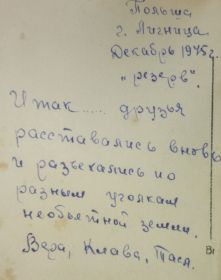 Польша
г. Лигница
Декабрь 1975г.
"резерв".
Итак...... друзья
расставались вновь
и разъехались по
разным уголкам
необъятной земли.
Вера, Клава, Тася.